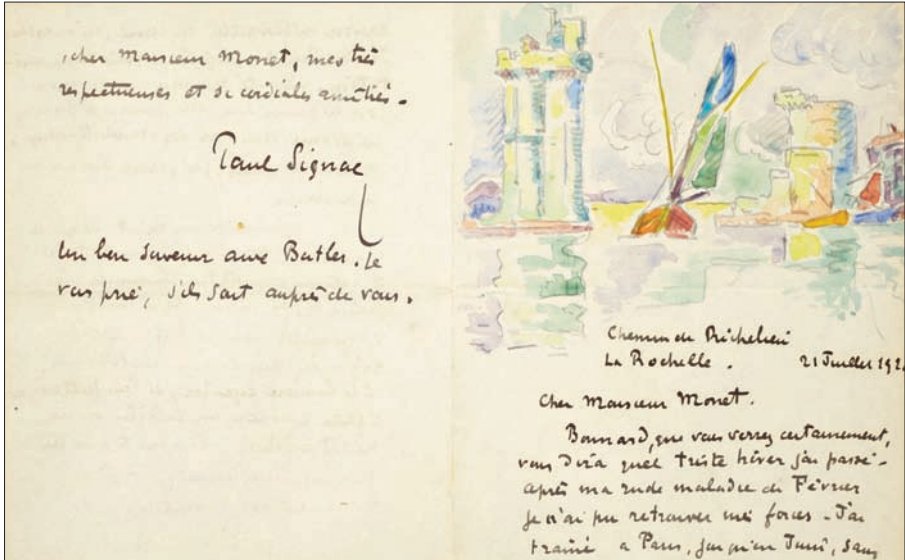 , cher Monsieur Monet, mes très
respectueuses et si cordiales amitiés.
Paul Signac
Un bon souvenir aux Butler. Je
vous prie, s'ils sont auprès de vous.
Chemin de Richelieu
La Rochelle. 21 Juillet 192
Cher Monsieur Monet.
Bonnard, que vous verrez certainement,
vous dira quel triste hiver j'ai passé.
après ma rude maladie de Février
je n'ai pu retrouver mes forces. J'ai
traîné à Paris, jusqu'en Juin, sans